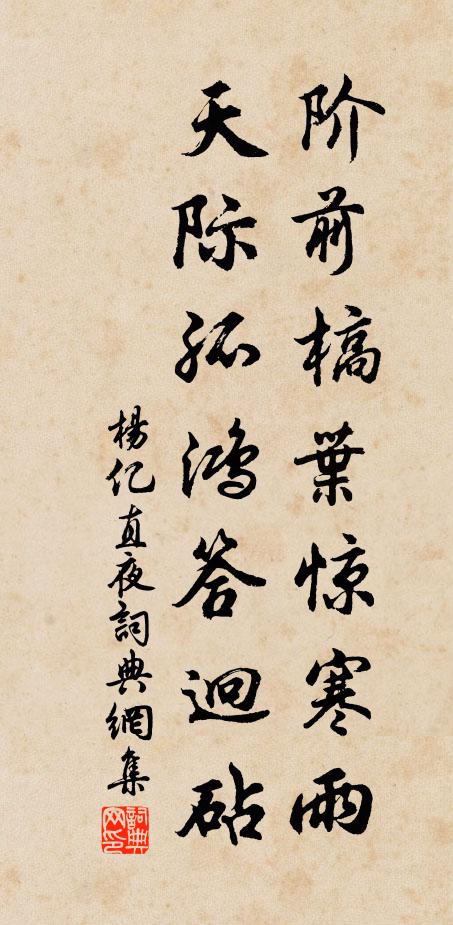 阶前槁葉惊寒雨
天际孤鸿答迥砧
楊亿直夜詞典網集
詞典网印